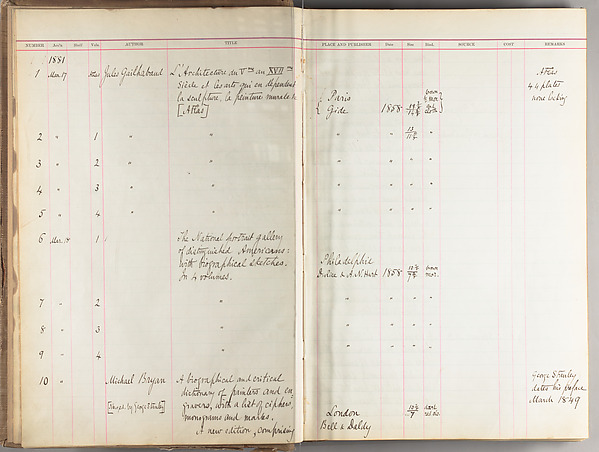 NUMBER Acc'n Shelf Vols. AUTHOR TITLE PLACE AND PUBLISHER Date Size Bind. SOURCE COST REMARKS
1881
1 Mar. 17 Atlas Jules Gailhabaud L'Architecture du Vme au XVIIme
Siècle et les arts qui en dépendent
la sculpture, la peinture murale &c
[Atlas]
Paris
Gide 1858
Atlas
44 plates
none lacking
2 " 1 " " " " "
3 " 2 " " " " " "
4 " 3 " " " " " "
5 " 4 " " " " " "
6 Mar. 18 1 The National portrait gallery
of distinguished Americans:
with biographical sketches.
In 4 volumes.
Philadelphia
& A. N. Hart 1858 brown
mor.
7 " 2 " " " " "
8 " 3 " " " " "
9 " 4 " " " " "
10 " Michael Bryan A biographical and critical
dictionary of painters and en-
[Enlarged by George Stanley] gravers, with a list of ciphers,
monograms and marks.
A new edition, comprising
London
Bell & Daldy
George Stanley
dates his preface
March 1849